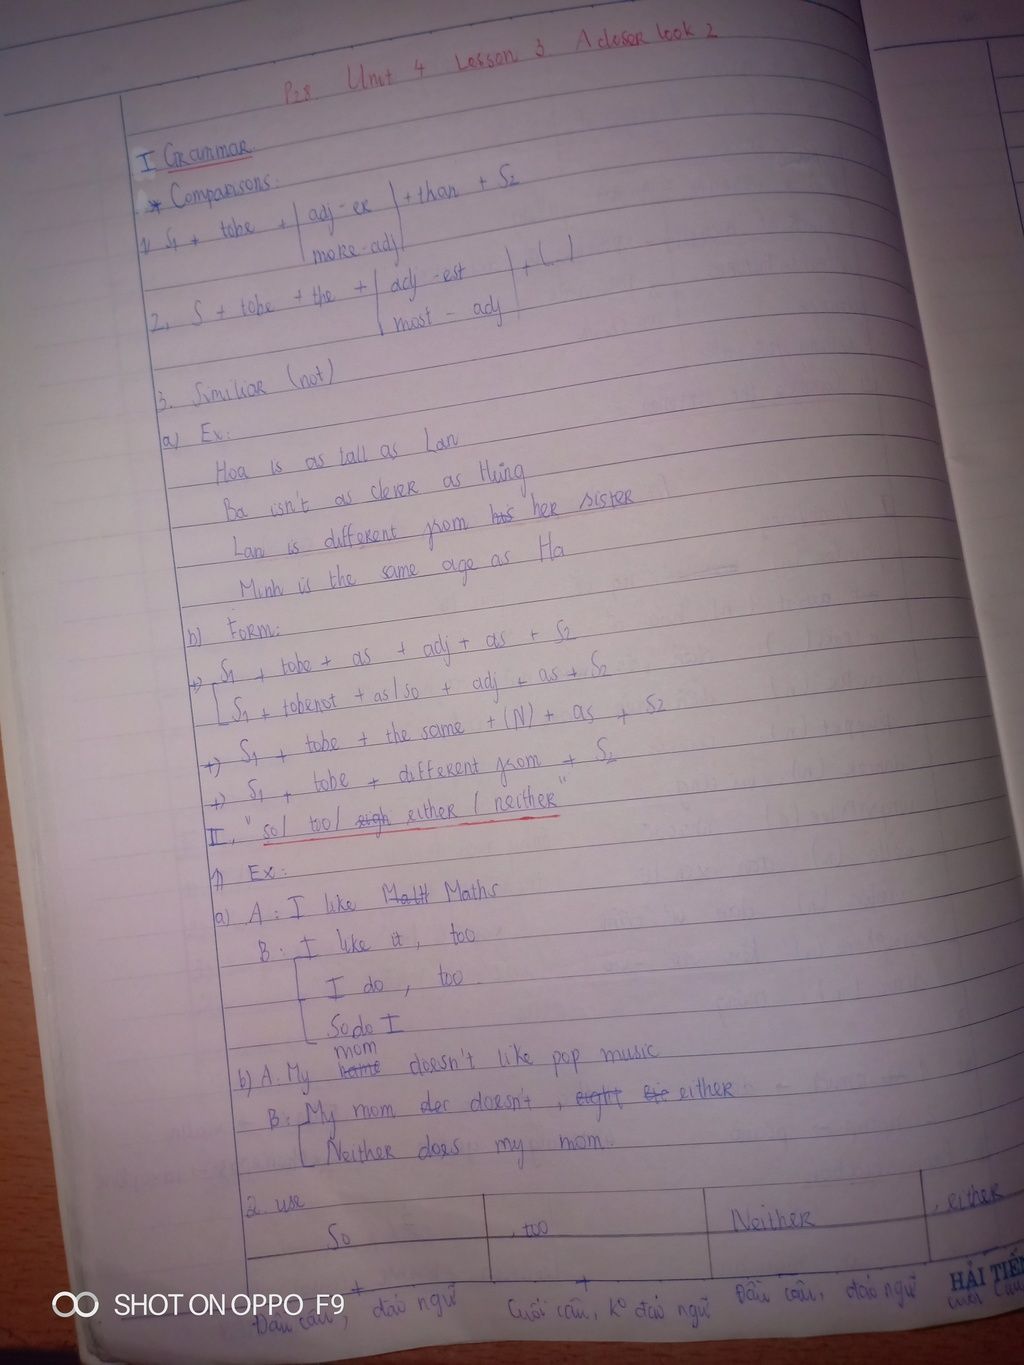 P28 Unit 4 Lesson 3 A closer look 2
I Grammar
* Comparisons:
1, S1 + tobe + | adj-er | + than + S2
more-adj
2, S + tobe + the + | adj-est | + (...)
most - adj
3. Similiar (not)
a) Ex:
Hoa is as tall as Lan
Ba isn't as clever as Hùng
Lan is different from her sister
Minh is the same age as Ha
b) Form:
+) S1 + tobe + as + adj + as + S2
S1 + tobenot + as/so + adj + as + S2
+) S1 + tobe + the same + (N) + as + S2
+) S1 + tobe + different from + S2
II. "so/ too/ either / neither"
1) Ex:
a) A: I like Maths
B: I like it, too
I do, too
So do I
b) A. My mom doesn't like pop music
B: My mom doesn't, either
Neither does my mom
2. use
So , too Neither , either
+ +
Đầu câu, đảo ngữ Cuối câu, ko đảo ngữ Đầu câu, đảo ngữ
HẢI TIẾN
SHOT ON OPPO F9